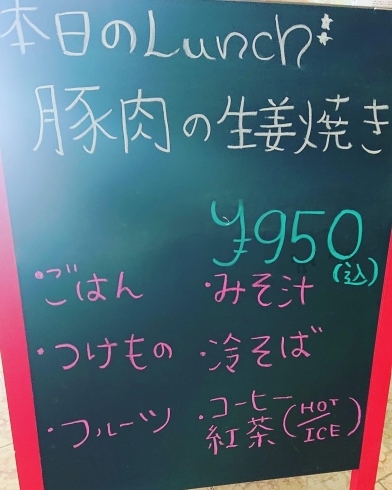 本日のLunch
豚肉の生姜焼き
¥950
(込)
・ごはん ・みそ汁
・つけもの ・冷そば
・フルーツ ・コーヒー
紅茶(HOT/ICE)